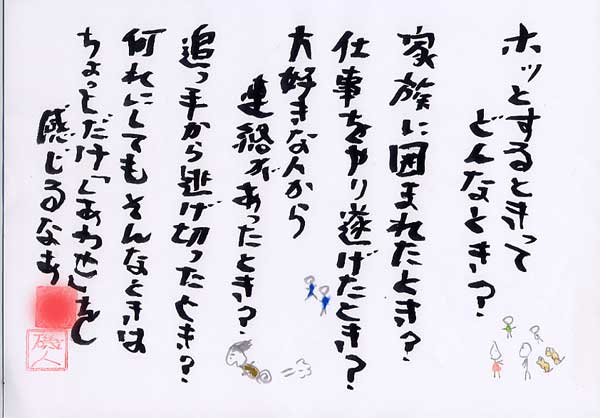 ホッとするときって
どんなとき?
家族に囲まれたとき?
仕事をやり遂げたとき?
大好きな人から
連絡があったとき?
追っ手から逃げ切ったとき?
何れにしてもそんなときは
ちょっとだけ「しあわせ」を
感じるなあ